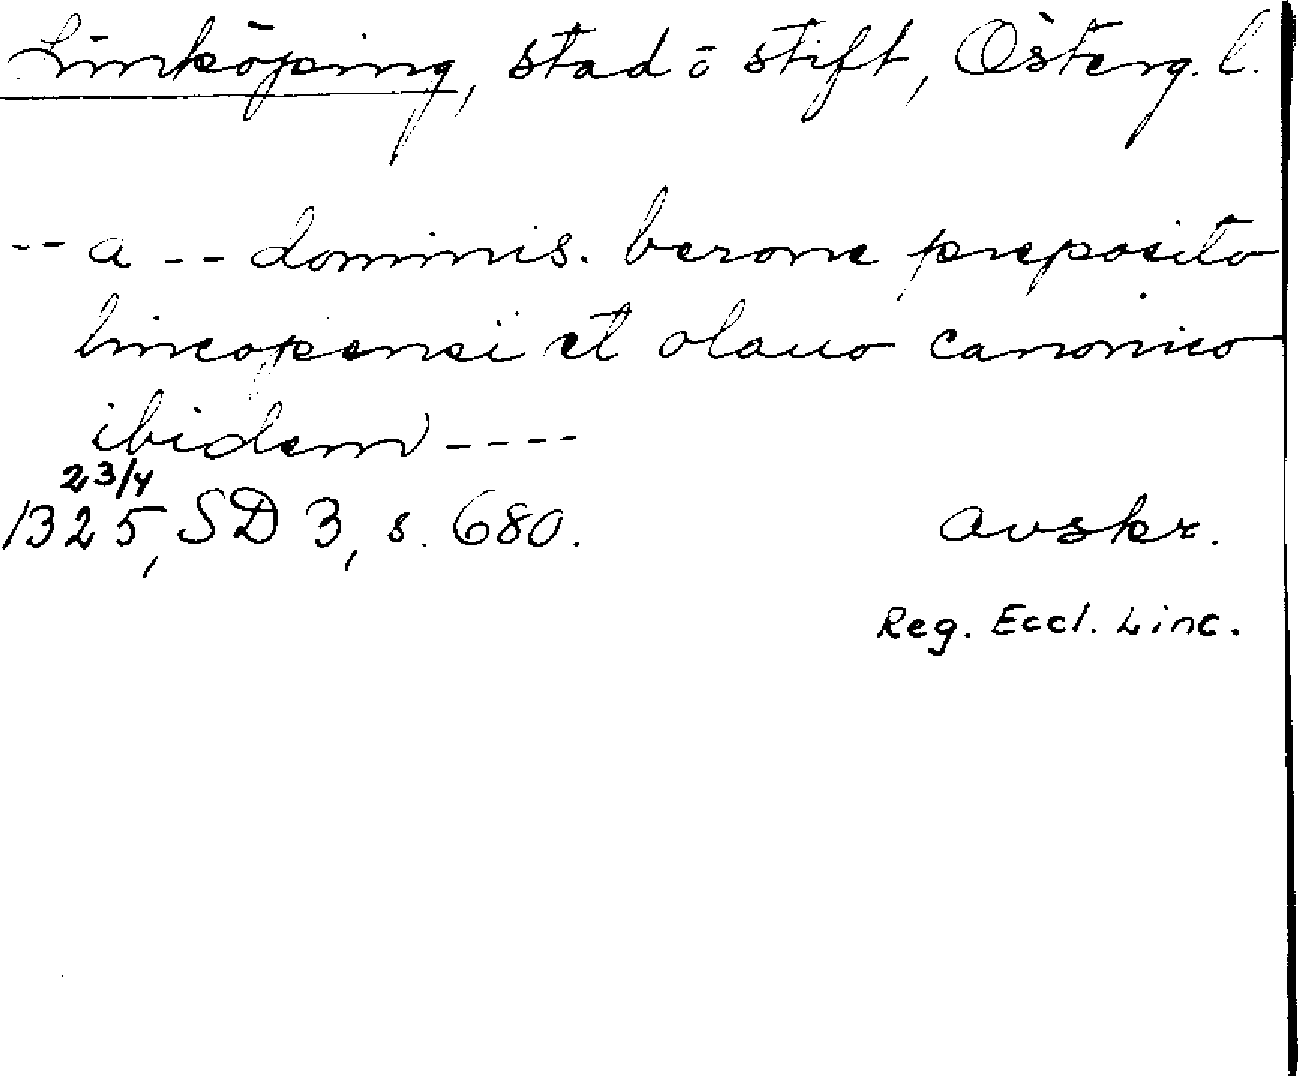 Linköping, stad o stift, Österg. l.
-- a -- dominis. berone preposito
lincopensi et olauo canonico
ibidem ----
23/4
1325, SD 3, s. 680. avskr.
Reg. Eccl. Linc.